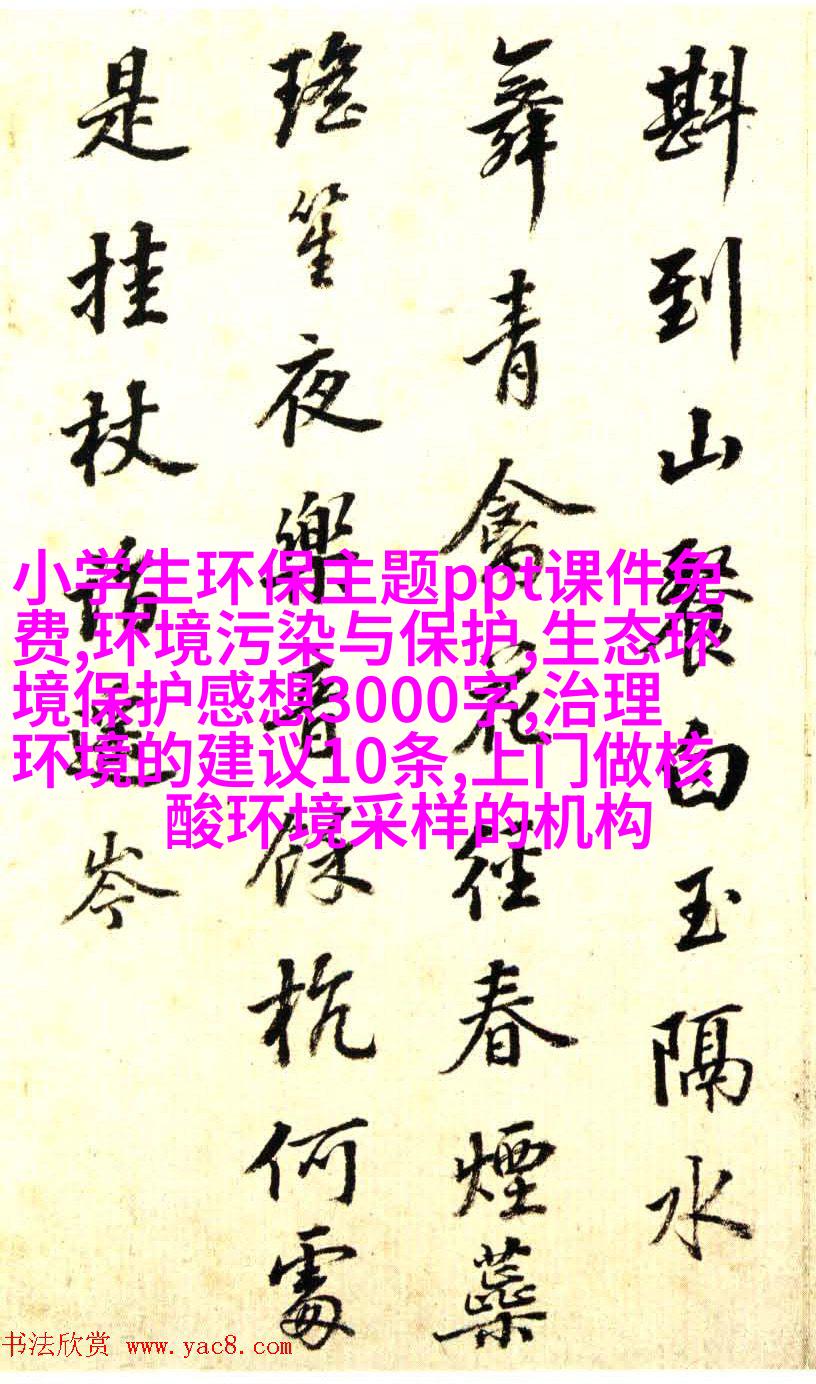 斟到山餐白玉隔水
舞青禽花徑春煙蘂
瑤笙夜樂音餘杭何處
是挂杖話岑
小学生环保主题ppt课件免
费,环境污染与保护,生态环
境保护感想3000字,治理
环境的建议10条,上门做核
酸环境采样的机构
书法欣赏 www.yac8.com